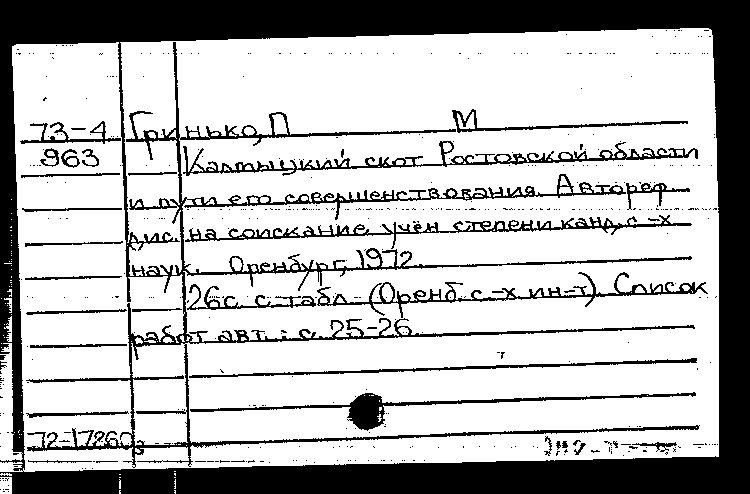 73-4 Гринько, П М
963 Калмыцкий скот Ростовской области
и пути его совершенствования. Автореф.
дис. на соискание учён степени канд. с-х
наук. Оренбург, 1972.
26с. с табл. (Оренб. с-х ин-т). Список
работ авт.: с. 25-26.
72-17860з